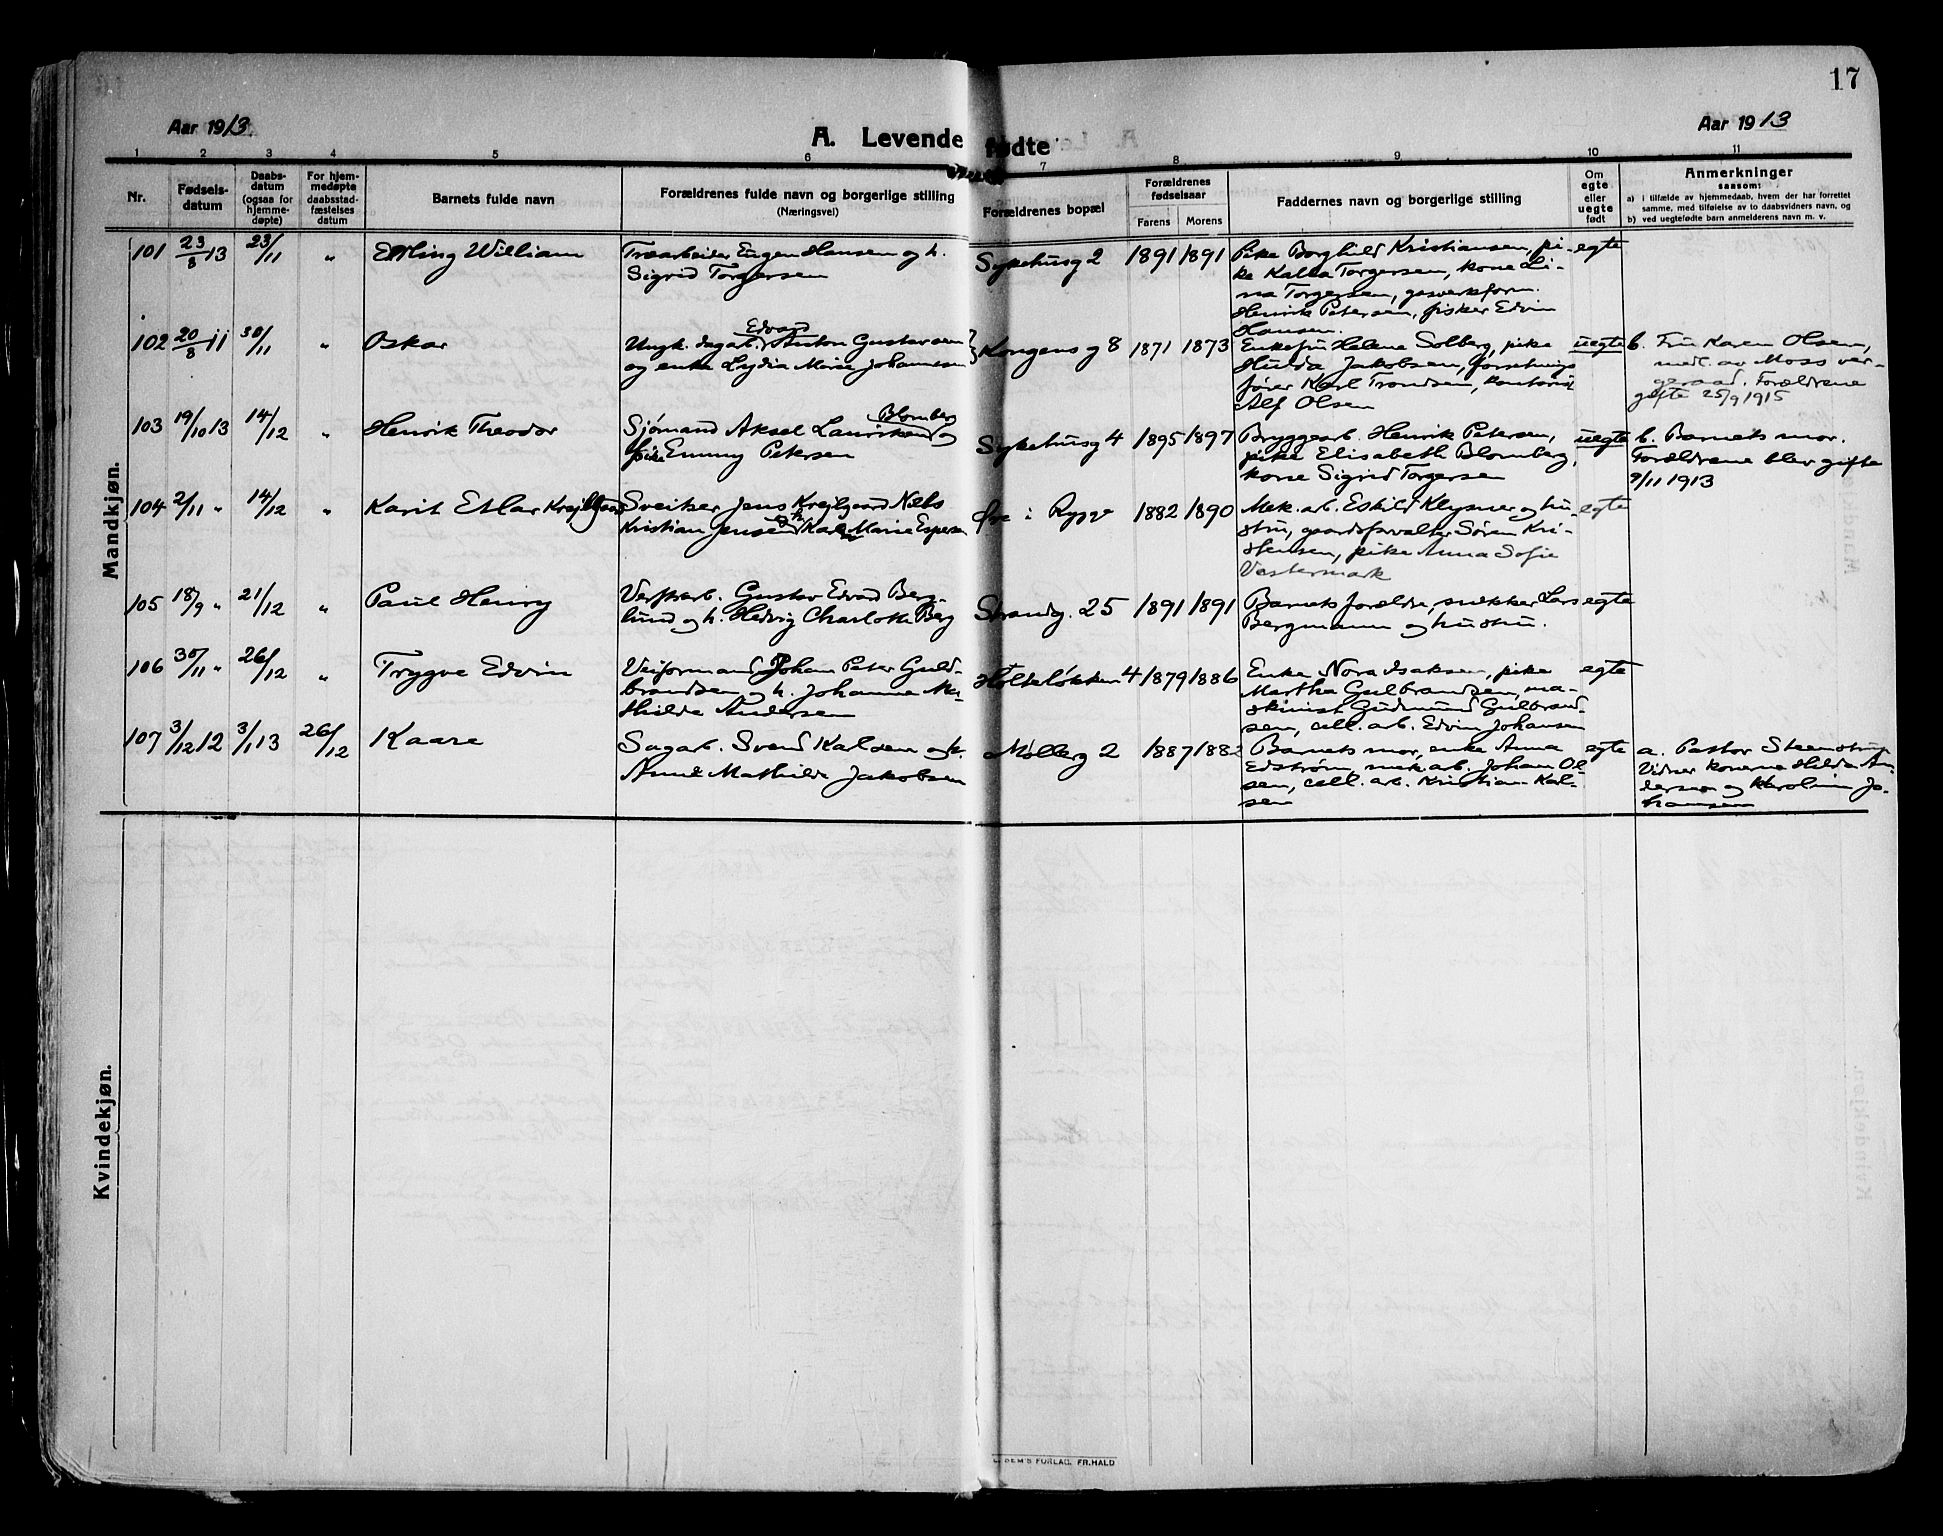 17
Aar 1913.
A. Levende fødte
Aar 1913
1 2 3 4 5 6 7 8 9 10 11
Nr.
Fødsels-
datum
Daabs-
datum
(ogsaa for
hjemme-
døpte)
For hjem-
medøpte
daabsstad-
fæstelses
datum
Barnets fulde navn
Forældrenes fulde navn og borgerlige stilling
(Næringsvei)
Forældrenes bopæl
Forældrenes
fødselsaar
Farens Morens
Faddernes navn og borgerlige stilling
Om
egte
eller
uegte
født
Anmerkninger
saasom:
a) i tilfælde av hjemmedaab, hvem der har forrettet
samme, med tilføielse av to daabsvidners navn, og
b) ved uegtefødte barn anmelderens navn m. v.
Mandkjøn.
101 23/8 13 23/11 " Erling William
Træarbeider Eugen Hansen og h.
Sigrid Torgersen
Sykehusg 2 1891 1891
Pike Borghild Kristiansen, pi-
ke Kalla Torgersen, kone Li-
na Torgersen, gasverkform.
Henrik Petersen, fisker Edvin
Hansen.
egte
102 20/8 11 30/11 " Oskar
Edvard
Ungk. dagarb. Anton Gustavsen
og enke Lydia Marie Johannesen
Kongens g 8 1871 1873
Enkefru Helene Solberg, pike
Hulda Jakobsen, forretnings
fører Karl Trondsen, kontorist
Alf Olsen
uegte
b. Fru Karen Olsen,
medl. av Moss ver-
geraad. Forældrene
gifte 25/9 1915
103 19/10 13 14/12 " Henrik Theodor
Blomberg
Sjømand Aksel Lauritsen og
pike Emmy Petersen
Sykehusg 4 1895 1897
Bryggearb. Henrik Petersen,
pike Elisabeth Blomberg,
kone Sigrid Torgersen
uegte
b. Barnets mor.
Forældrene blev gifte
9/11 1913
104 2/11 " 14/12 " Karit Etlar Krejlgaard
Sveitser Jens Krejlgaard Niels
Kristian Jensen og h. Karen Marie Espersen
Øre i Rygge 1882 1890
Mek. arb. Eskild Klysner og hu-
stru, gaardsforvalter Søren Kri-
stensen, pike Anna Sofie
Vestermark
egte
105 18/9 " 21/12 " Paul Henry
Verftsarb. Gustav Edvard Berg-
lund og h. Hedvig Charlotte Berg
Strandg. 25 1891 1891
Barnets forældre, snekker Lars
Bergmann og hustru.
egte
106 30/11 " 26/12 " Trygve Edvin
Veiformand Johan Peter Guld-
brandsen og h. Johanne Ma-
thilde Andersen
Holteløkken 4 1879 1886
Enke Nora Isaksen, pike
Martha Gulbrandsen, ma-
skinist Gudmund Gulbrand-
sen, cell. arb. Edvin Johansen
egte
107 3/12 12 3/1 13 26/12 Kaare
Sagarb. Svend Karlsen og h.
Anne Mathilde Jakobsen
Mølleg 2 1887 1882
Barnets mor, enke Anna
Edstrøm, mek. arb. Johan Ol-
sen, cell. arb. Kristian Karl-
sen
egte
a. Pastor Steenstrup
Vidner konerne Hilda An-
dersen og Karoline Jo-
hansen
Kvindekjøn.
FORLAG. FR.HALD